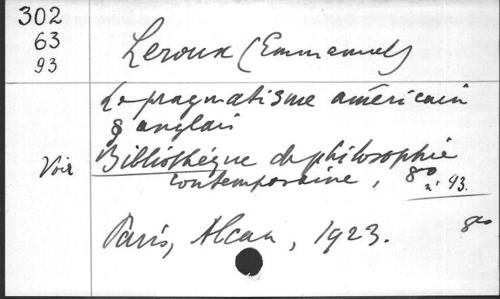 302
63
93
Leroux (Emmanuel)
Le pragmatisme américain
& anglais
Voir Bibliothèque de philosophie
contemporaine, 8º
nº 93.
Paris, Alcan, 1923. 8º